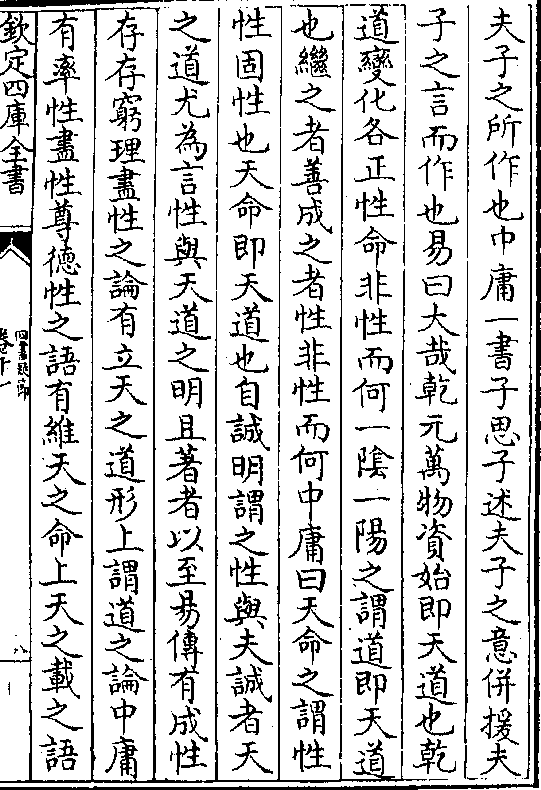 夫子之所作也中庸一書子思子述夫子之意併援夫
子之言而作也易曰大哉乾元萬物資始即天道也乾
道變化各正性命非性而何一陰一陽之謂道即天道
也繼之者善成之者性非性而何中庸曰天命之謂性
性固性也天命即天道也自誠明謂之性與夫誠者天
之道尤為言性與天道之明且著者以至易傳有成性
存存窮理盡性之論有立天之道形上謂道之論中庸
有率性盡性尊德性之語有維天之命上天之載之語
欽定四庫全書
四書
八